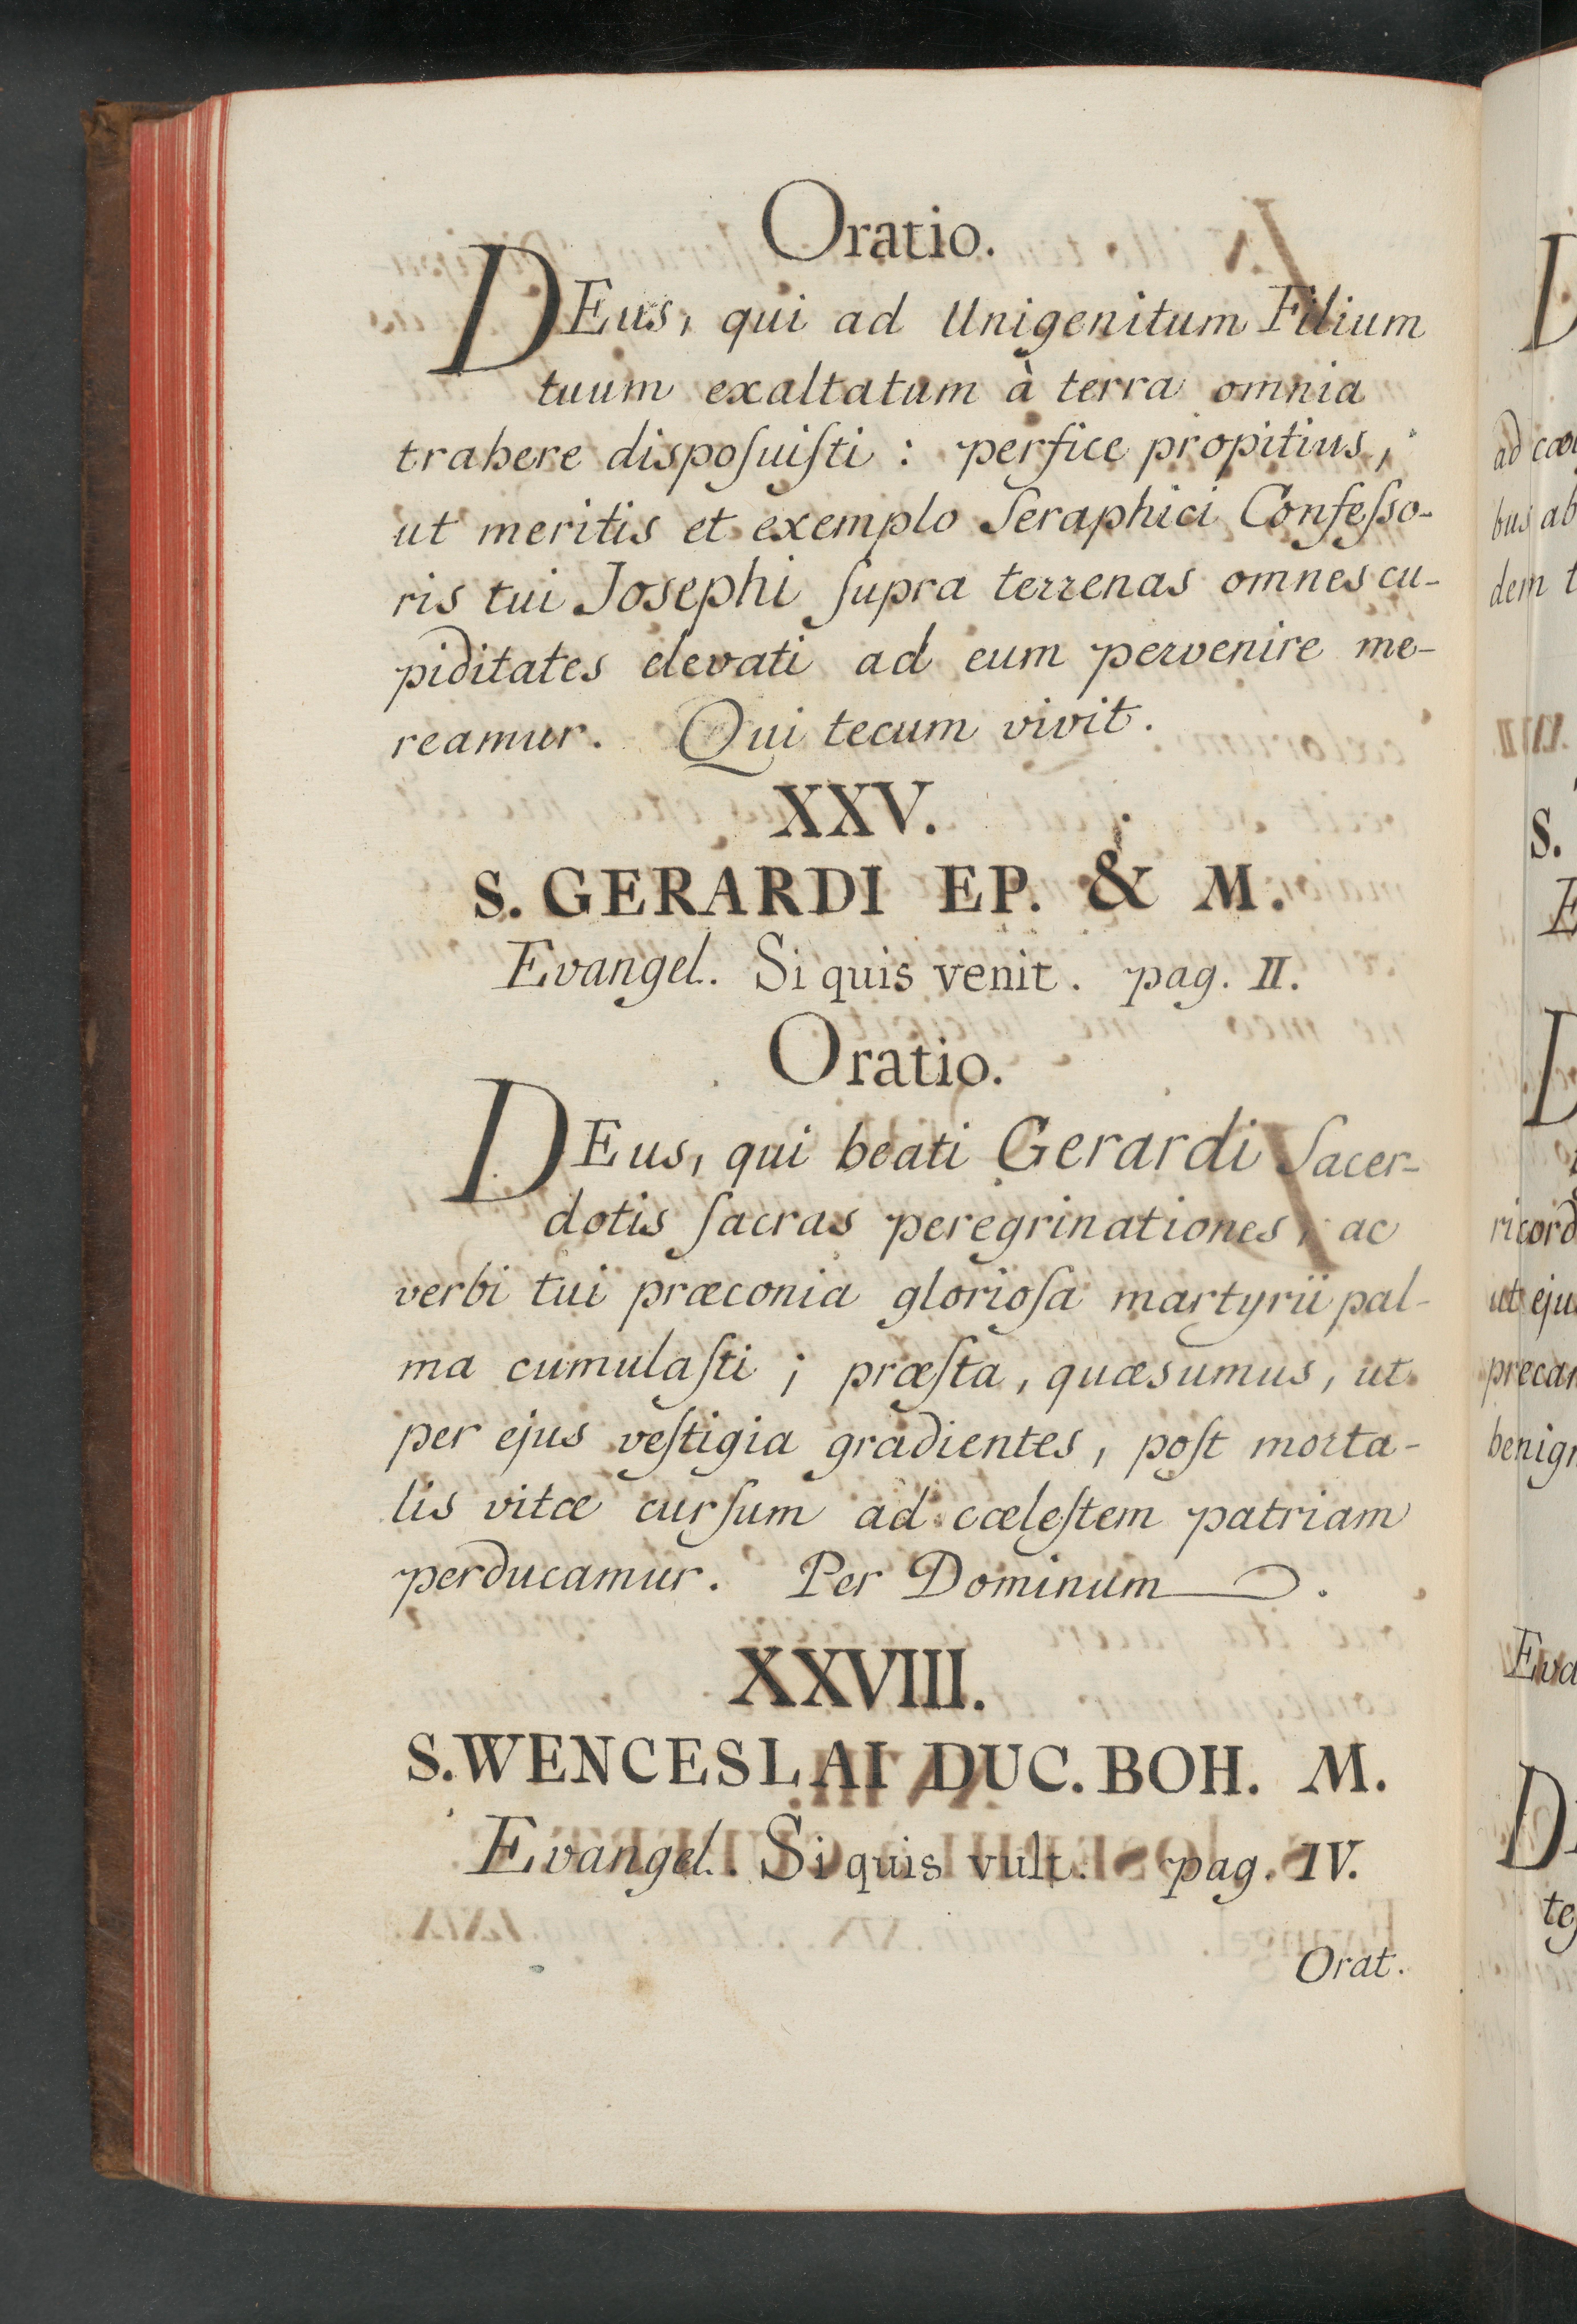 Oratio.
DEus, qui ad Unigenitum Filium
tuum exaltatum à terra omnia
trahere dispoſuiſti : perfice propitius,
ut meritis et exemplo Seraphici Confeſſo-
ris tui Josephi ſupra terrenas omnes cu-
piditates elevati ad eum pervenire me-
reamur. Qui tecum vivit.
XXV.
S. GERARDI EP. & M.
Evangel. Si quis venit. pag. II.
Oratio.
DEus, qui beati Gerardi Sacer-
dotis ſacras peregrinationes, ac
verbi tui præconia glorioſa martyrii pal-
ma cumulaſti ; præſta, quæsumus, ut
per ejus veſtigia gradientes, poſt morta-
lis vitæ curſum ad cœleſtem patriam
perducamur. Per Dominum .
XXVIII.
S. WENCESLAI DUC. BOH. M.
Evangel. Si quis vult. pag. IV.
Orat.
ad cœ
bus ab
dem t
S.
E
ricord
ut eju
precan
benign
Eva
D
te